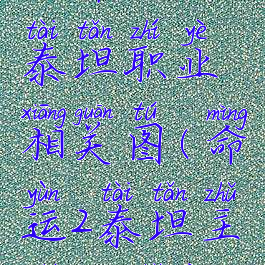 tài tǎn zhí yè
泰坦职业
xiāng guān tú mìng
相关图(命
yùn tài tǎn zhǔ
运2泰坦主